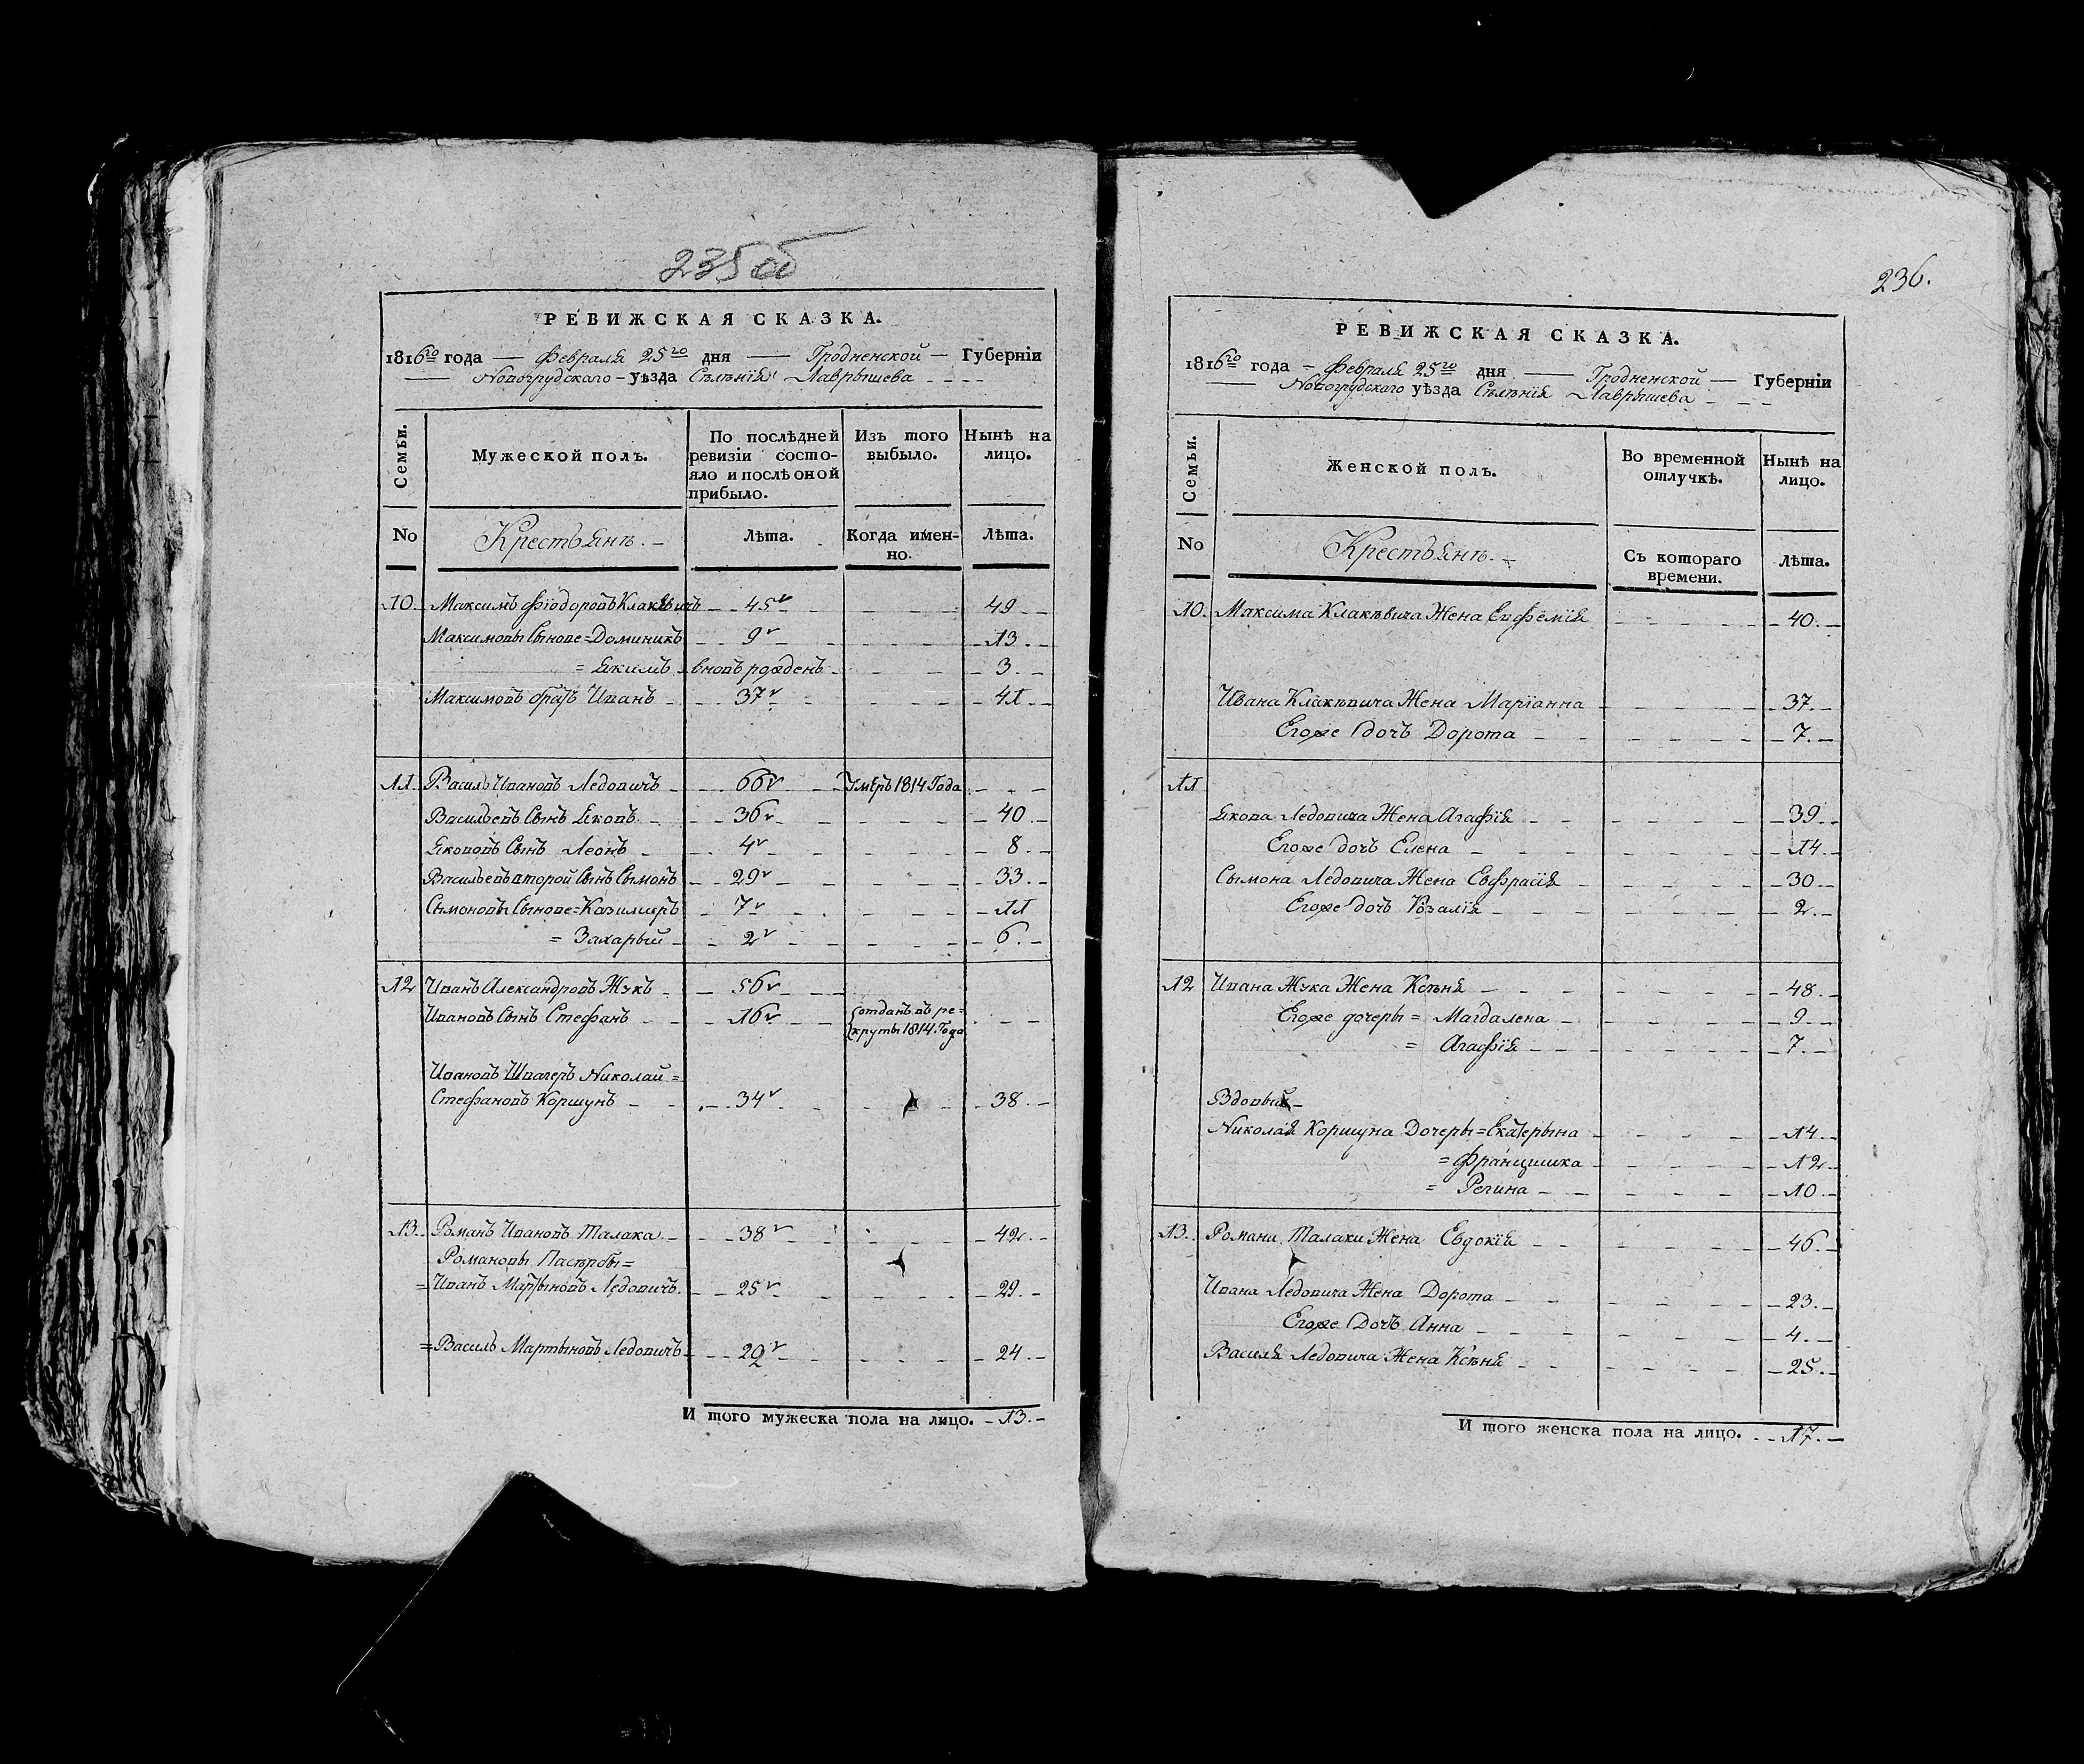 235 об
РЕВИЖСКАЯ СКАЗКА.
1816го года — Февраля 25го дня — Гродненской — Губерніи
— Новогрудскаго — уѣзда Сѣлѣнія Лаврышева
Семьи.
Мужеской полъ.
По послѣдней ревизіи состояло и послѣ оной прибыло.
Изъ того выбыло.
Нынѣ на лицо.
No
Крестьянъ. —
Лѣта.
Когда именно.
Лѣта.
10. Максимъ Фіодоровъ Клакѣвичъ — 45 — 49
Максимовы Сынове = Доминикъ — 9 — 13
= Якимъ вновъ рожденъ — 3
Максимовъ братъ Иванъ — 37 — 41
11. Василь Ивановъ Ледовичъ — 66 — Умеръ 1814 Года
Васильевъ Сынъ Яковъ — 36 — 40
Якововъ Сынъ Леонъ — 4 — 8
Васильевъ второй Сынъ Сымонъ — 29 — 33
Сымоновы Сынове = Казимиеръ — 7 — 11
= Захарый — 2 — 6
12 Иванъ Александровъ Жукъ — 56
Ивановъ Сынъ Стефанъ — 16 — отданъ въ ре=
круты 1814. Года
Ивановъ Швагеръ Николай =
Стефановъ Коршунъ — 34 — 38
13. Романъ Ивановъ Талака — 38 — 42
Романовы Пасѣрбы =
= Иванъ Мартыновъ Ледовичъ — 25 — 29
= Василь Мартыновъ Ледовичъ — 20 — 24
И того мужеска пола на лицо. — 13. —
236.
РЕВИЖСКАЯ СКАЗКА.
1816го года — Февраля 25го дня — Гродненской — Губерніи
— Новогрудскаго уѣзда Сѣлѣнія Лаврышева
Семьи.
Женской полъ.
Во временной отлучкѣ.
Нынѣ на лицо.
No
Крестьянъ. —
Съ котораго времени.
Лѣта.
10. Максима Клакѣвича Жена Евфемія — 40
Ивана Клакѣвича Жена Маріанна — 37
Егоже дочъ Дорота — 7
11
Якова Ледовича Жена Агафія — 39
Егоже дочъ Елена — 14
Сымона Ледовича Жена Евфрасія — 30
Егоже дочъ Розалія — 2
12 Ивана Жука Жена Ксѣня — 48
Егоже дочеры = Магдалена — 9
= Агафія — 7
Вдовый —
Николая Коршуна Дочеры = Екатерына — 14
= Францишка — 12
= Регина — 10
13. Романа Талаки Жена Евдокія — 46
Ивана Ледовича Жена Дорота — 23
Егоже Дочъ Анна — 4
Василя Ледовича Жена Ксѣня — 25
И того женска пола на лицо. — 17. —